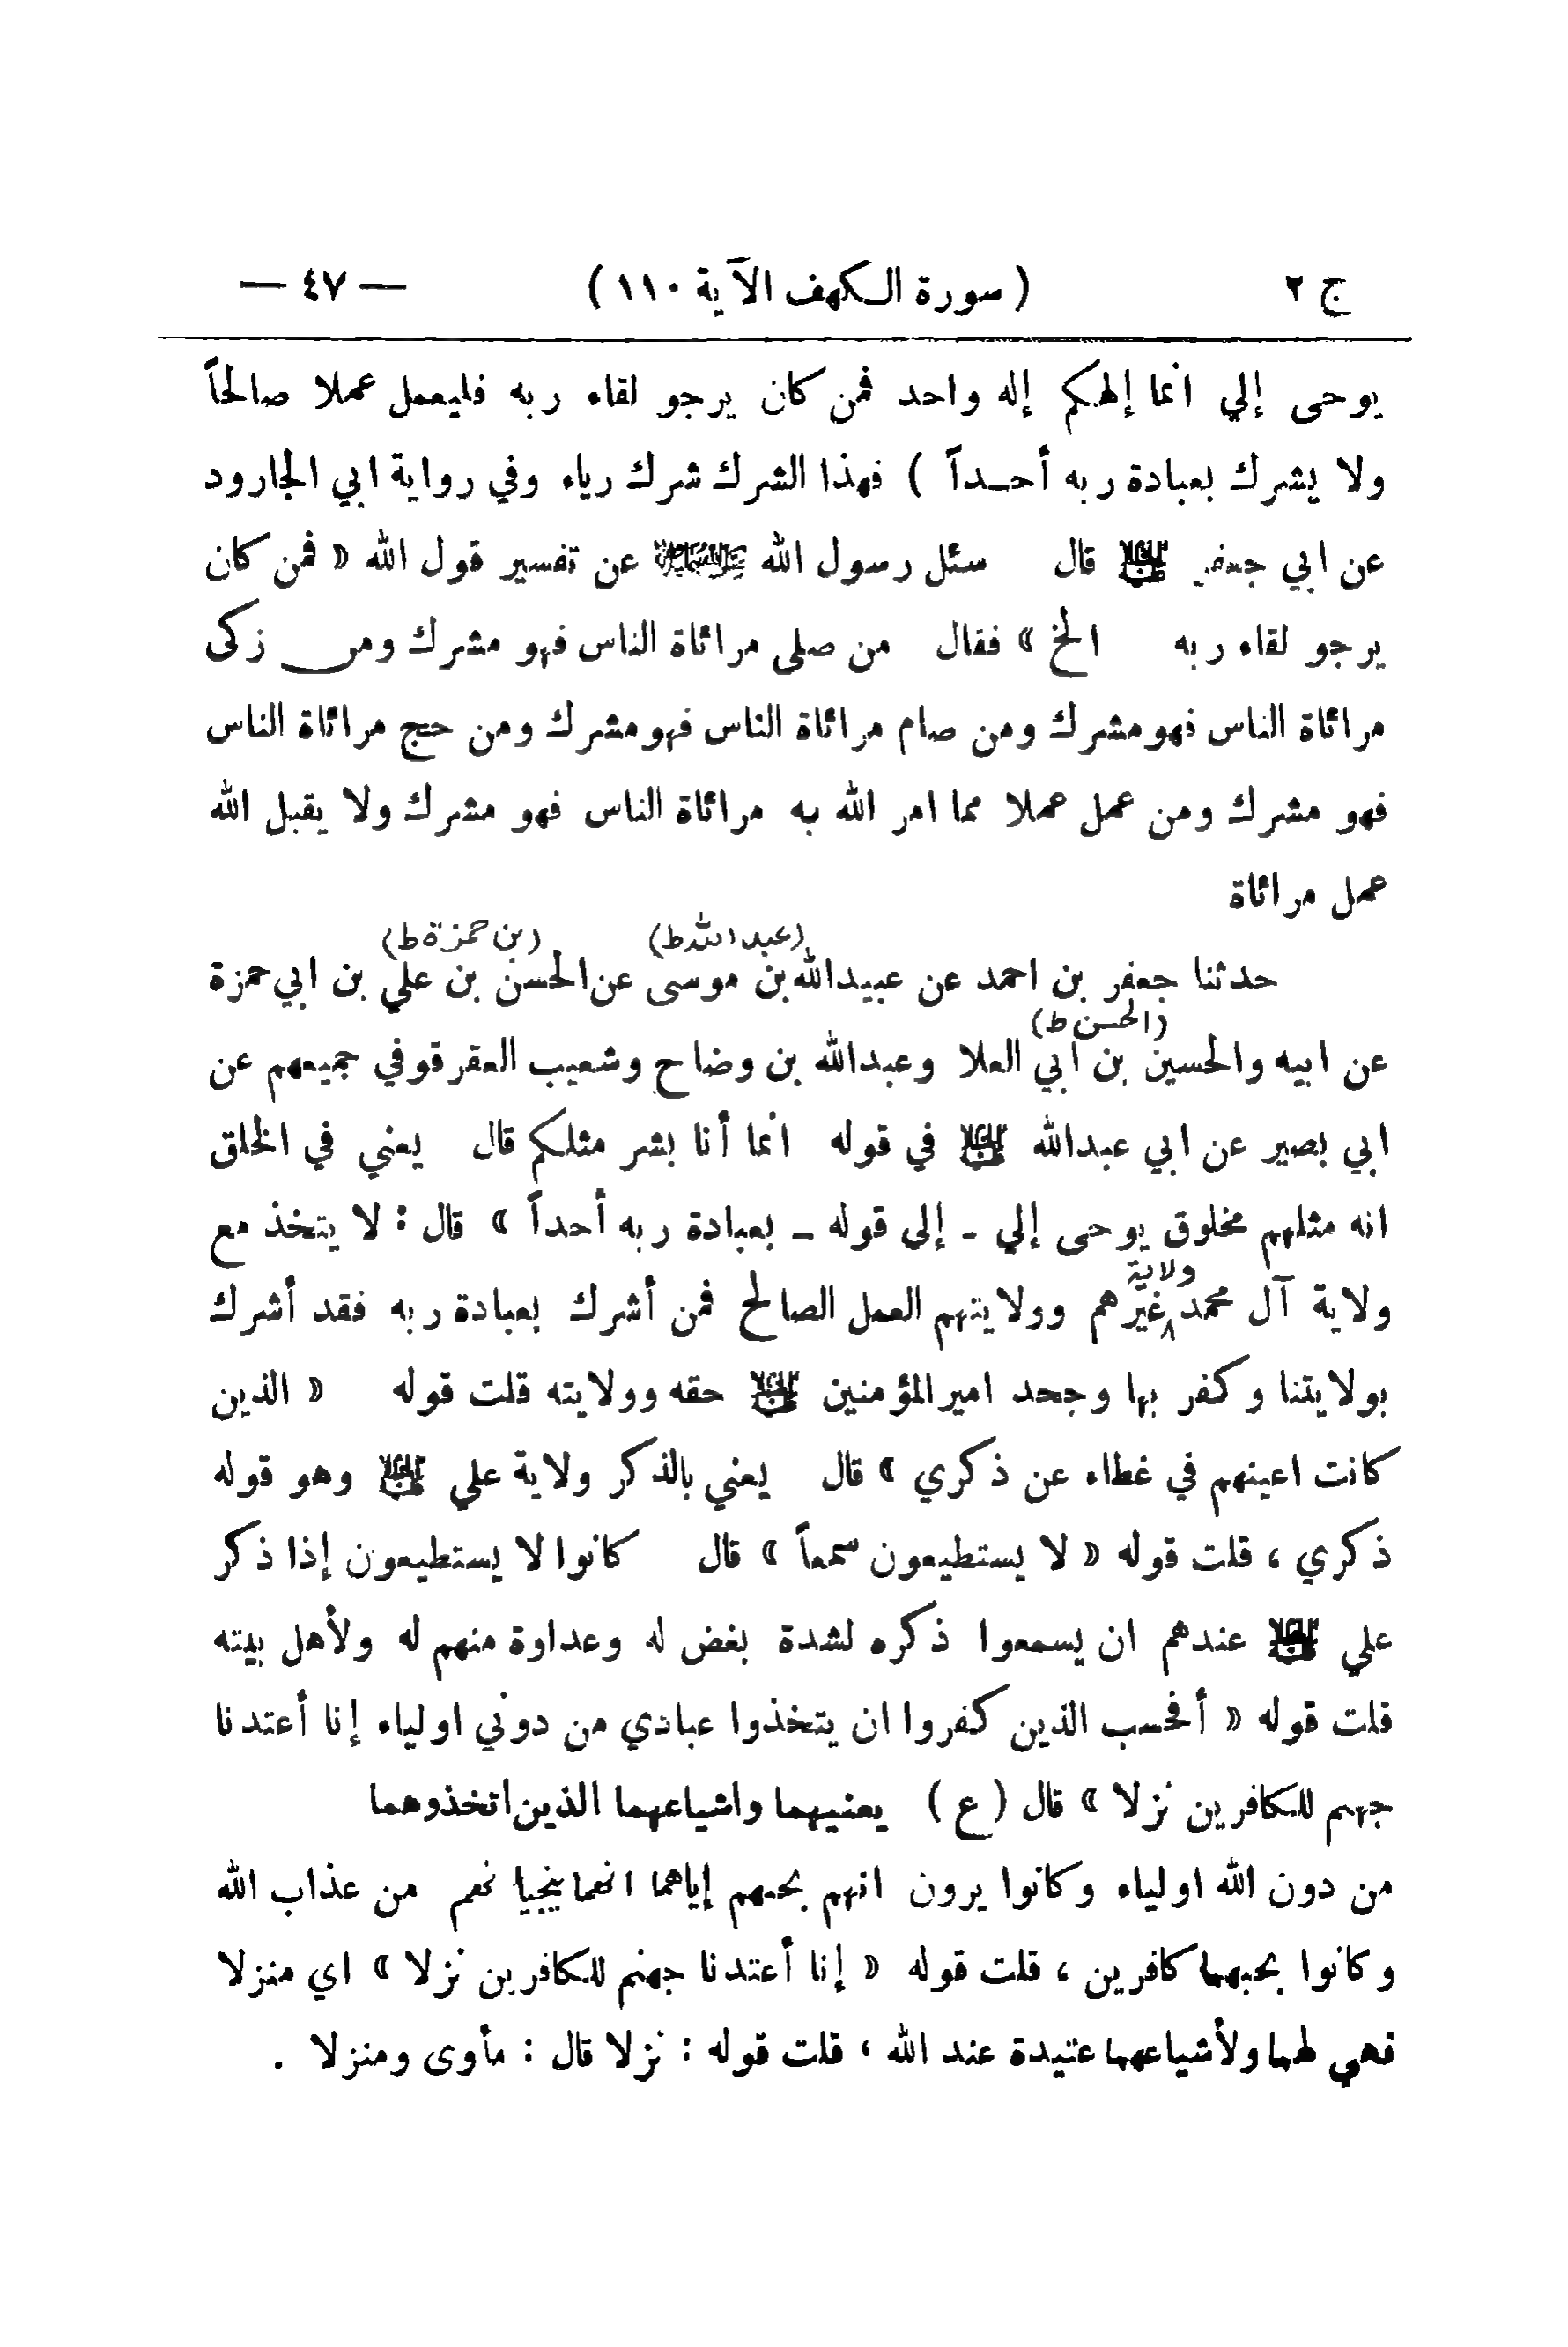 ج ٢ ( سورة الكهف الآية ١١٠ ) — ٤٧ —
يوحى إلي انما إلهكم إله واحد فمن كان يرجو لقاء ربه فليعمل عملا صالحاً
ولا يشرك بعبادة ربه أحداً ) فهذا الشرك شرك رياء وفي رواية ابي الجارود
عن ابي جعفر عليه السلام قال سئل رسول الله صلى الله عليه وآله عن تفسير قول الله « فمن كان
يرجو لقاء ربه الخ » فقال من صلى مراءاة الناس فهو مشرك ومن زكى
مراءاة الناس فهو مشرك ومن صام مراءاة الناس فهو مشرك ومن حج مراءاة الناس
فهو مشرك ومن عمل عملا مما امر الله به مراءاة الناس فهو مشرك ولا يقبل الله
عمل مراءاة
(عبدالله ط) (بن حمزة ط)
حدثنا جعفر بن احمد عن عبيدالله بن موسى عن الحسن بن علي بن ابي حمزة
(الحسن ط)
عن ابيه والحسين بن ابي العلا وعبدالله بن وضاح وشعيب العقرقوفي جميعهم عن
ابي بصير عن ابي عبدالله عليه السلام في قوله انما أنا بشر مثلكم قال يعني في الخلق
انه مثلهم مخلوق يوحى إلي - إلى قوله - بعبادة ربه أحداً » قال : لا يتخذ مع
ولاية
ولاية آل محمد غيرهم وولايتهم العمل الصالح فمن أشرك بعبادة ربه فقد أشرك
بولايتنا وكفر بها وجحد امير المؤمنين عليه السلام حقه وولايته قلت قوله « الذين
كانت اعينهم في غطاء عن ذكري » قال يعني بالذكر ولاية علي عليه السلام وهو قوله
ذكري ، قلت قوله « لا يستطيعون سمعاً » قال كانوا لا يستطيعون إذا ذكر
علي عليه السلام عندهم ان يسمعوا ذكره لشدة بغض له وعداوة منهم له ولأهل بيته
قلت قوله « أفحسب الذين كفروا ان يتخذوا عبادي من دوني اولياء إنا أعتدنا
جهنم للكافرين نزلا » قال (ع) يعنيهما واشياعهما الذين اتخذوهما
من دون الله اولياء وكانوا يرون انهم بحبهم إياهما انهما ينجيانهم من عذاب الله
وكانوا بحبهما كافرين ، قلت قوله « إنا أعتدنا جهنم للكافرين نزلا » اي منزلا
فهي لهما ولأشياعهما عتيدة عند الله ، قلت قوله : نزلا قال : مأوى ومنزلا .